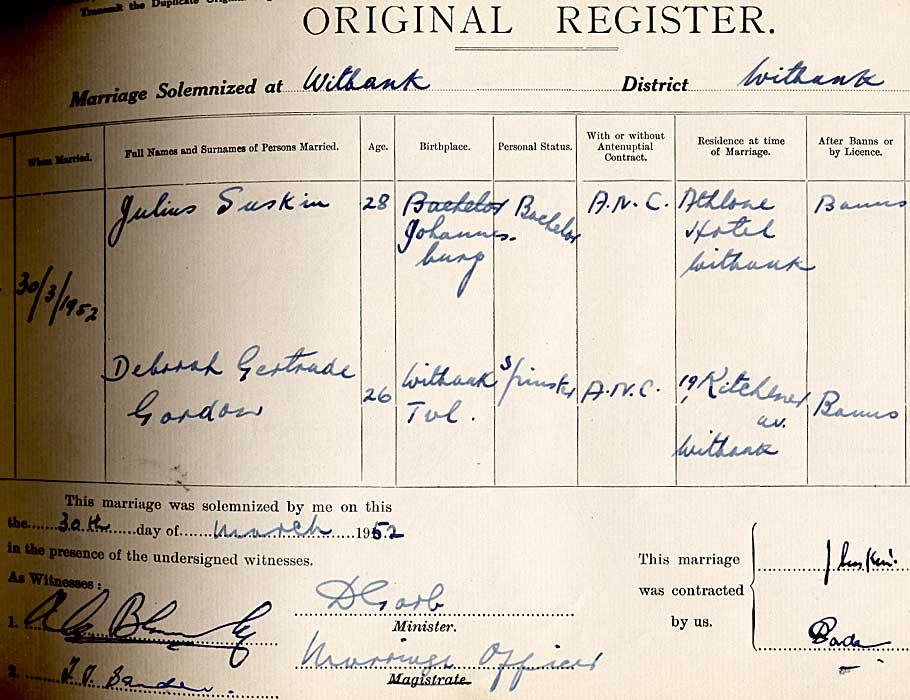 Transmit the Duplicate
ORIGINAL REGISTER.
Marriage Solemnized at Witbank District Witbank
When Married.
Full Names and Surnames of Persons Married.
Age.
Birthplace.
Personal Status.
With or without
Antenuptial
Contract.
Residence at time
of Marriage.
After Banns or
by Licence.
30/3/1952
Julius Suskin
28
Bachelor
Johannes-
burg
Bachelor
A.N.C.
Athlone
Hotel
Witbank
Banns
Deborah Gertrude
Gordon
26
Witbank
Tvl.
Spinster
A.N.C.
19, Kitchener
av.
Witbank
Banns
This marriage was solemnized by me on this
the 30th day of March 1952
in the presence of the undersigned witnesses.
As Witnesses:
1.
2.
Minister.
Marriage Officer
Magistrate
This marriage
was contracted
by us.
JSuskin.